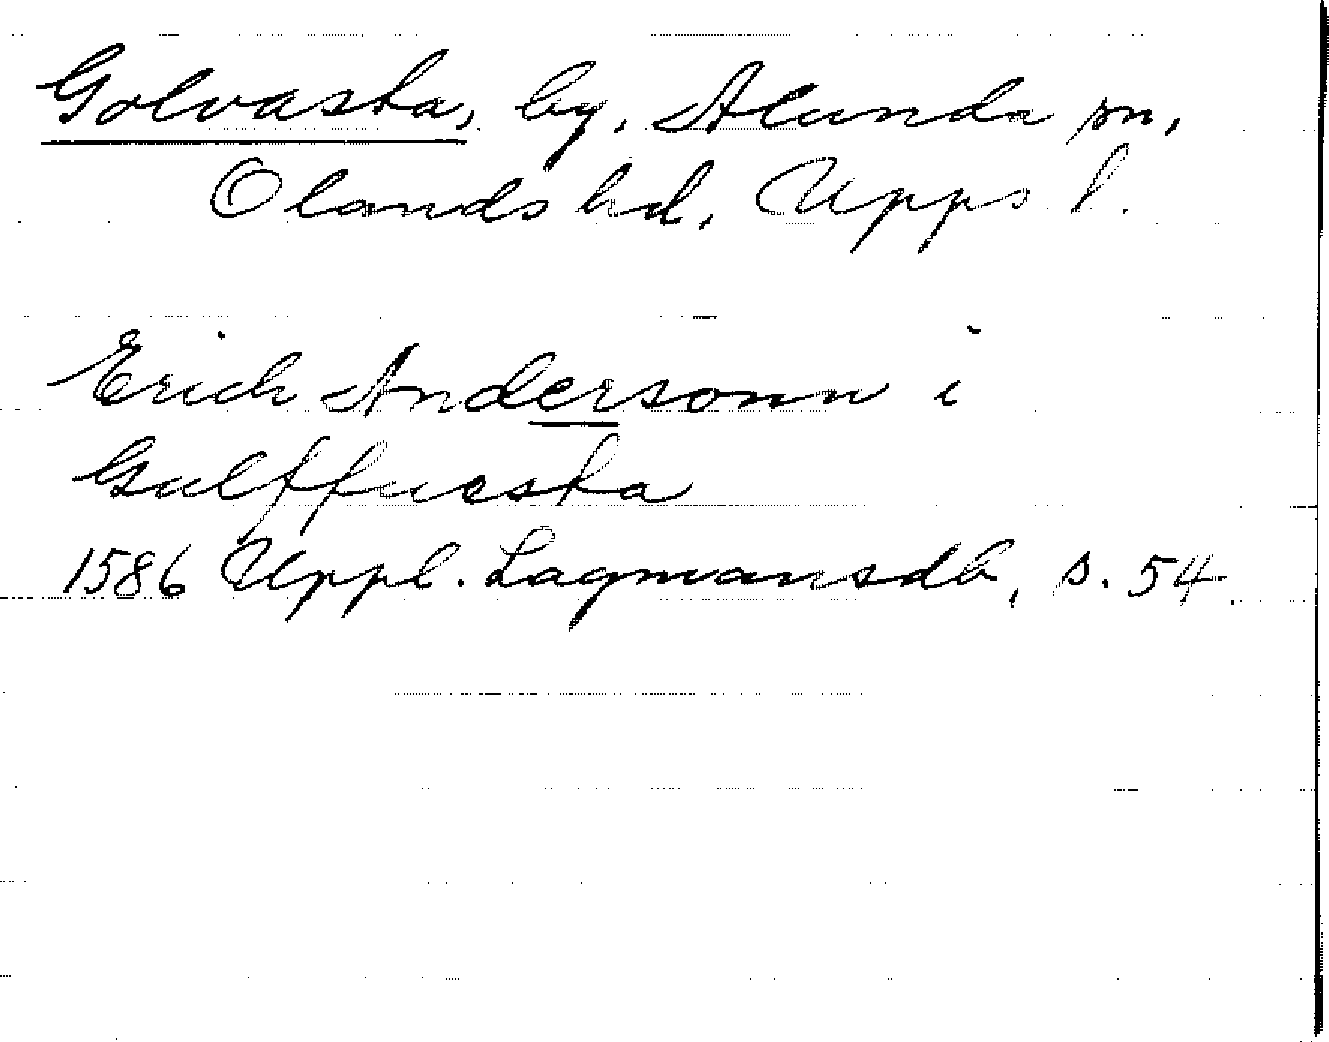 Golvasta, by, Alunda sn,
Olands hd, Upps l.
Erich Andersonn i
Gulffuesta
1586 Uppl. Lagmansdb, s. 54.